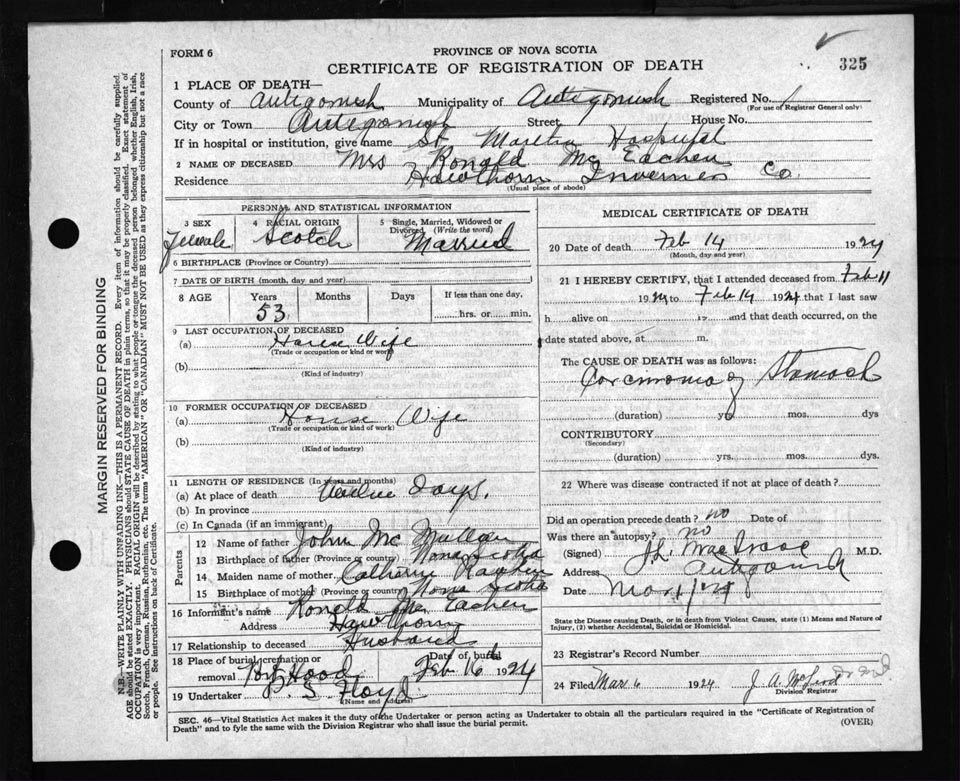 FORM 6
PROVINCE OF NOVA SCOTIA
CERTIFICATE OF REGISTRATION OF DEATH
325
1 PLACE OF DEATH—
County of Antigonish Municipality of Antigonish Registered No. 1
(For use of Registrar General only)
City or Town Antigonish Street House No.
If in hospital or institution, give name St. Martha Hospital
2 NAME OF DECEASED Mrs Ronald Mc Eachen
Residence Hawthorn Inverness Co.
(Usual place of abode)
PERSONAL AND STATISTICAL INFORMATION
3 SEX Female
4 RACIAL ORIGIN Scotch
5 Single, Married, Widowed or Divorced (Write the word) Married
6 BIRTHPLACE (Province or Country)
7 DATE OF BIRTH (month, day and year)
8 AGE Years Months Days If less than one day,
53 hrs. or min.
9 LAST OCCUPATION OF DECEASED
(a) House Wife
(Trade or occupation or kind of work)
(b)
(Kind of industry)
10 FORMER OCCUPATION OF DECEASED
(a) House Wife
(Trade or occupation or kind of work)
(b)
(Kind of industry)
11 LENGTH OF RESIDENCE (in years and months)
(a) At place of death days.
(b) In province
(c) In Canada (if an immigrant)
Parents
12 Name of father John Mc Mullan
13 Birthplace of father (Province or country) Nova Scotia
14 Maiden name of mother Catherine
15 Birthplace of mother (Province or country) Nova Scotia
16 Informant's name Ronald Mc Eachen
Address Hawthorn
17 Relationship to deceased Husband
18 Place of burial, cremation or removal Port Hood Date of burial Feb 16th 1924
19 Undertaker D. S. Floyd
(Name and address)
MEDICAL CERTIFICATE OF DEATH
20 Date of death Feb 14 1924
(Month, day and year)
21 I HEREBY CERTIFY, that I attended deceased from Feb 11
1924 to Feb 14 1924 that I last saw
h alive on 19 and that death occurred, on
date stated above, at m.
The CAUSE OF DEATH was as follows:
Carcinoma of Stomach
(duration) yrs. mos. dys
CONTRIBUTORY
(Secondary)
(duration) yrs. mos. dys.
22 Where was disease contracted if not at place of death?
Did an operation precede death? no Date of
Was there an autopsy? no
(Signed) J.L. MacIsaac M.D.
Address Antigonish
Date Mar 1/24
State the Disease causing Death, or in death from Violent Causes, state (1) Means and Nature of
Injury, (2) whether Accidental, Suicidal or Homicidal.
23 Registrar's Record Number
24 Filed Mar 6 1924 J. A. M
Division Registrar
SEC. 46—Vital Statistics Act makes it the duty of the Undertaker or person acting as Undertaker to obtain all the particulars required in the "Certificate of Registration of
Death" and to fyle the same with the Division Registrar who shall issue the burial permit.
(OVER)
MARGIN RESERVED FOR BINDING
N.B.—WRITE PLAINLY WITH UNFADING INK—THIS IS A PERMANENT RECORD. Every item of information should be carefully supplied.
AGE should be stated EXACTLY. PHYSICIANS should STATE CAUSE OF DEATH in plain terms, so that it may be properly classified. Exact statement of
OCCUPATION is very important. RACIAL ORIGIN will be described by stating to what people or tongue the deceased person belonged whether English, Irish,
Scotch, French, German, Russian, Ruthenian, etc. The terms "AMERICAN" OR "CANADIAN" MUST NOT BE USED as they express citizenship but not a race
or people. See instructions on back of Certificate.